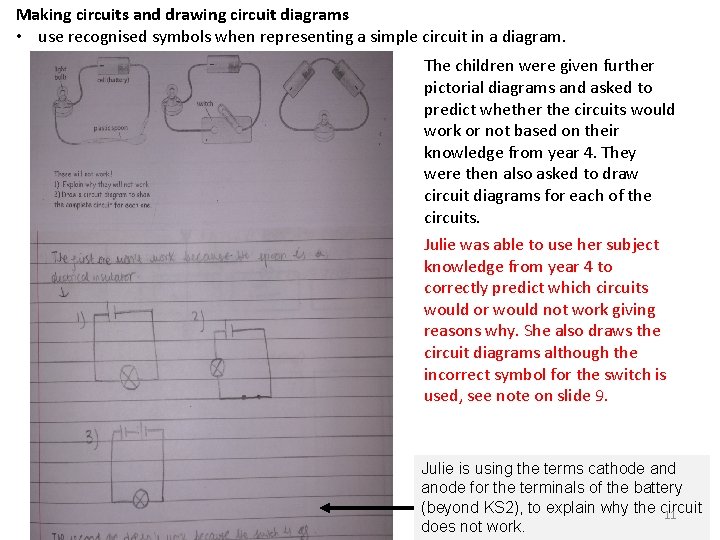 Making circuits and drawing circuit diagrams
• use recognised symbols when representing a simple circuit in a diagram.
light
bulb
cell (battery)
switch
plastic spoon
These will not work!
1) Explain why they will not work
2) Draw a circuit diagram to show
the complete circuit for each one.
The first one won't work because the spoon is a
electrical insulator.
1)
2)
3)
The second one doesn't work because the switch is off
The children were given further
pictorial diagrams and asked to
predict whether the circuits would
work or not based on their
knowledge from year 4. They
were then also asked to draw
circuit diagrams for each of the
circuits.
Julie was able to use her subject
knowledge from year 4 to
correctly predict which circuits
would or would not work giving
reasons why. She also draws the
circuit diagrams although the
incorrect symbol for the switch is
used, see note on slide 9.
Julie is using the terms cathode and
anode for the terminals of the battery
(beyond KS2), to explain why the circuit
does not work.
11